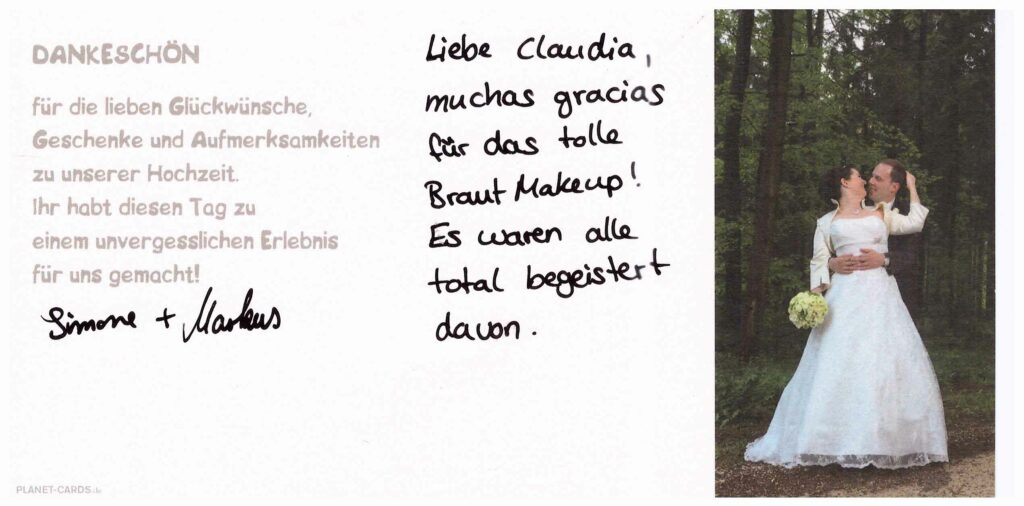 DANKESCHÖN
für die lieben Glückwünsche,
Geschenke und Aufmerksamkeiten
zu unserer Hochzeit.
Ihr habt diesen Tag zu
einem unvergesslichen Erlebnis
für uns gemacht!
Simone + Markus
PLANET-CARDS.de
Liebe Claudia,
muchas gracias
für das tolle
Braut Makeup!
Es waren alle
total begeistert
davon.